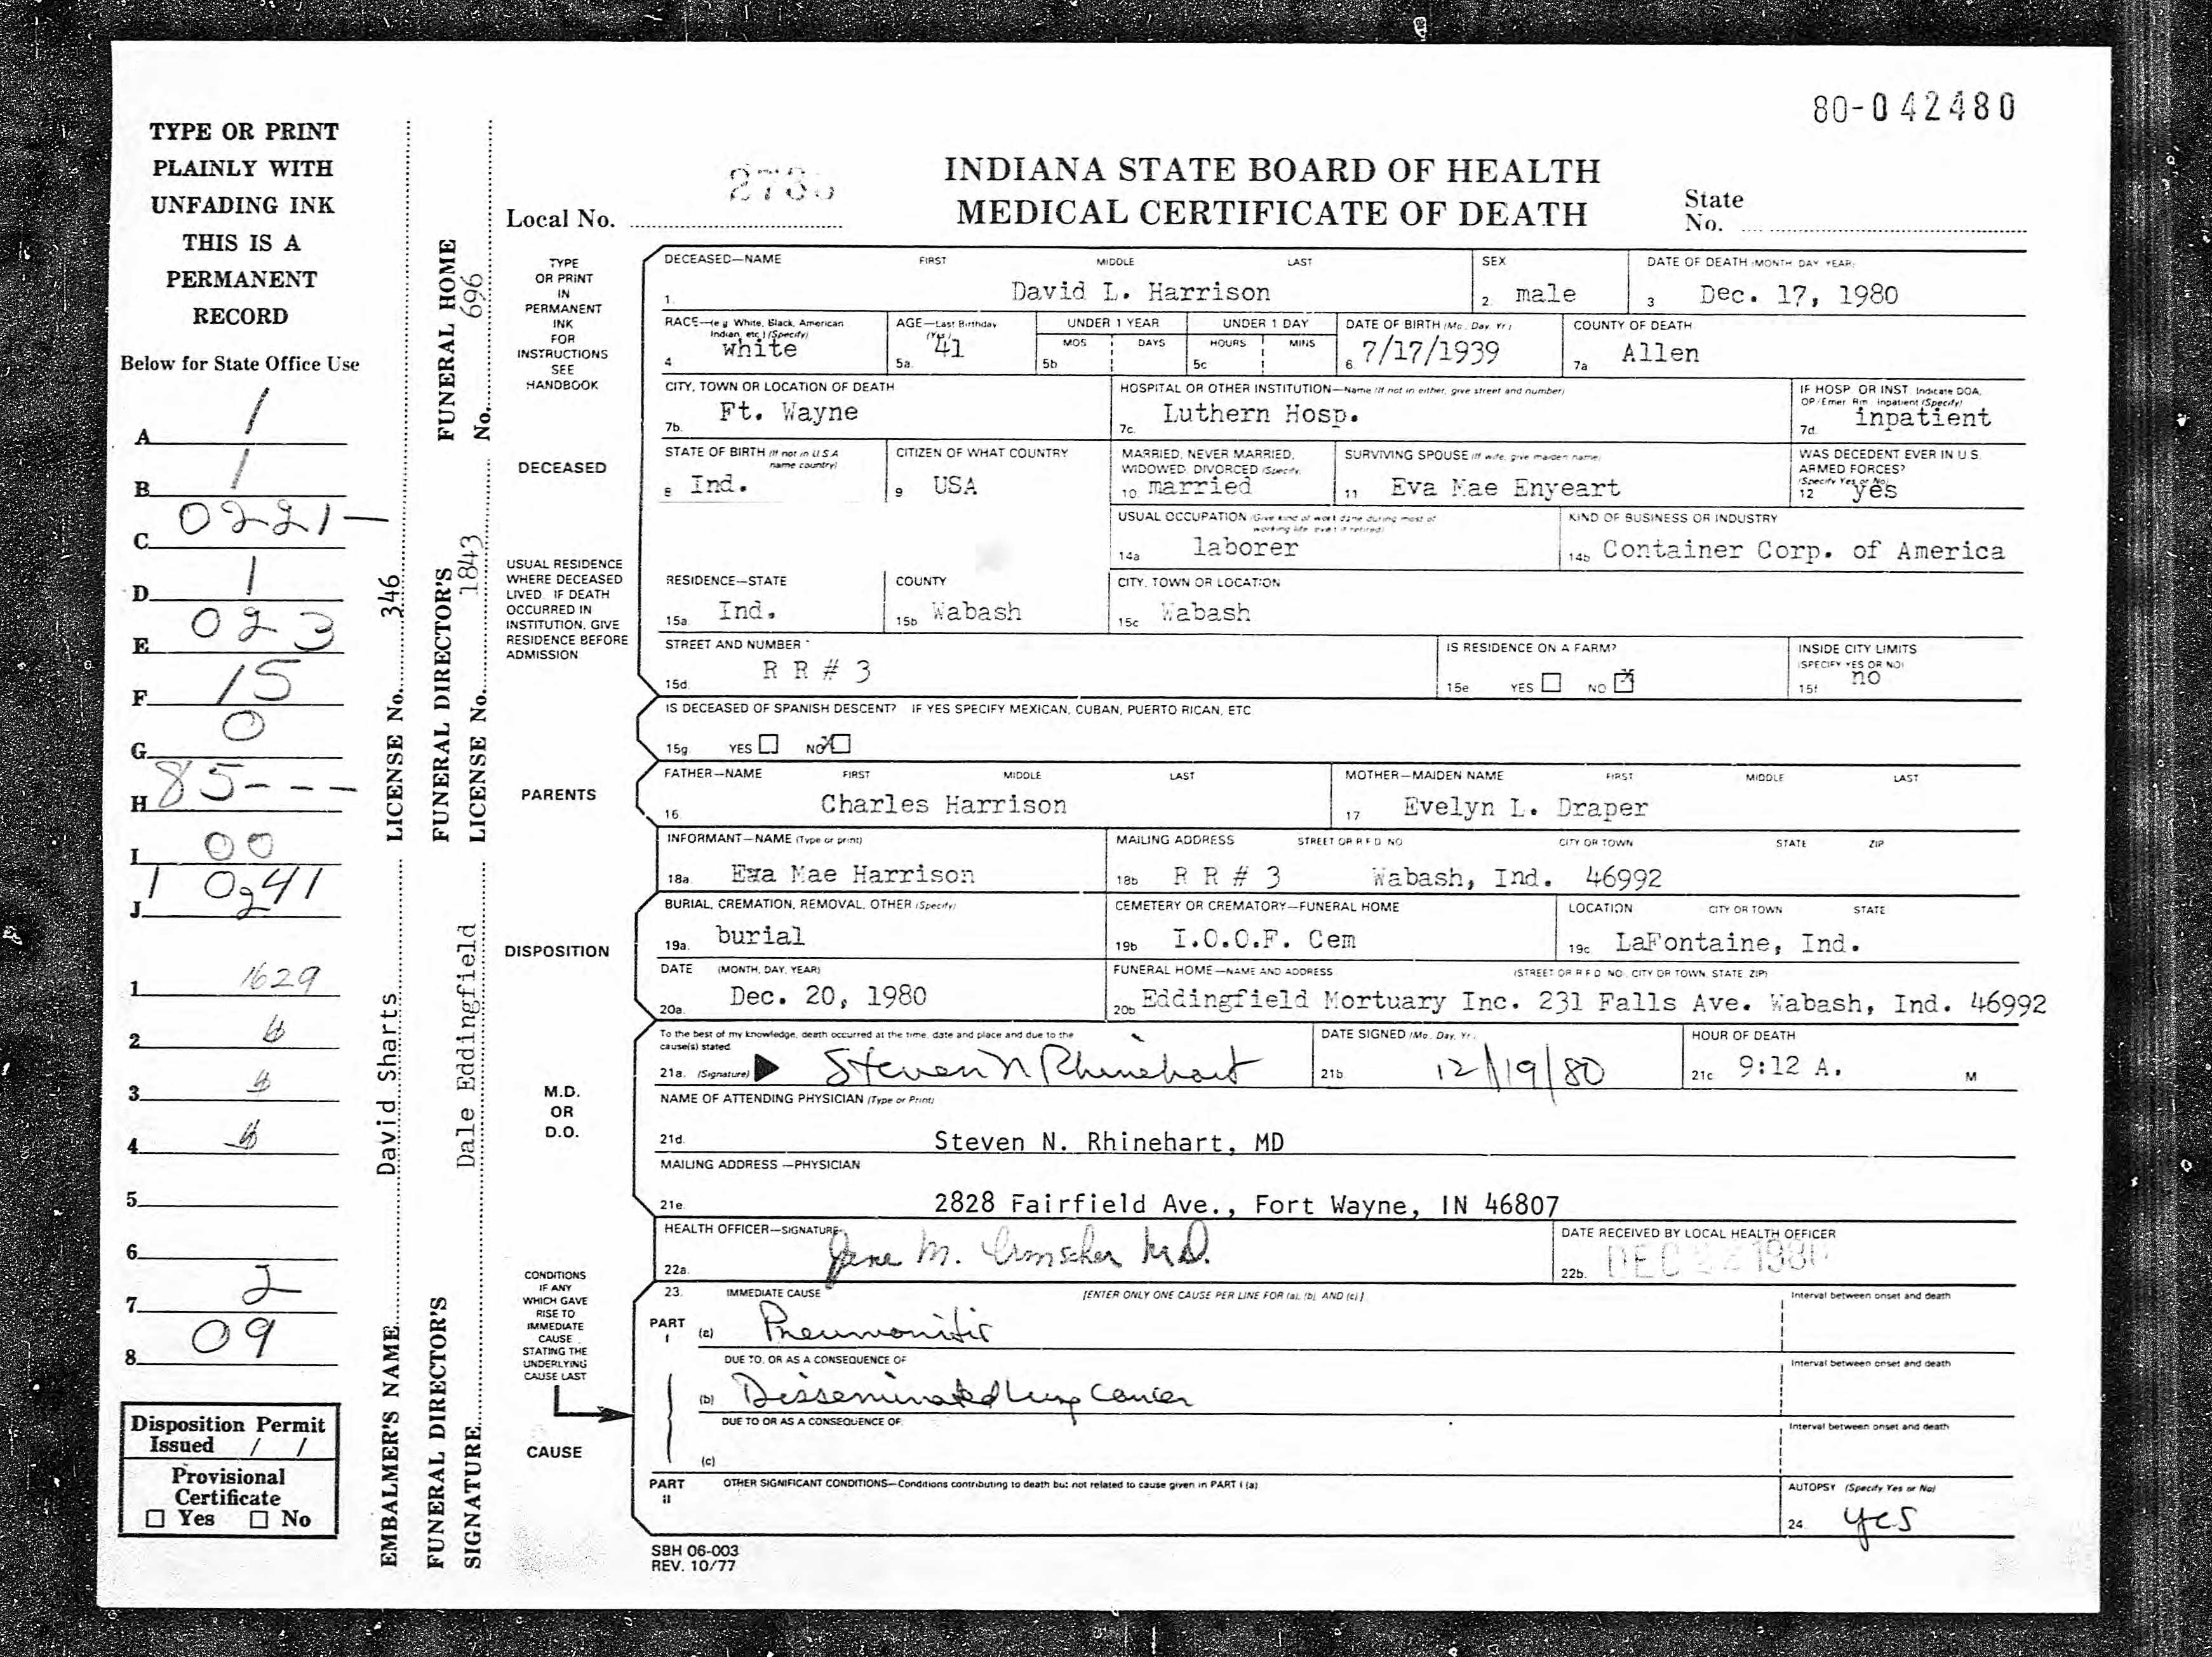 80-042480
TYPE OR PRINT
PLAINLY WITH
UNFADING INK
THIS IS A
PERMANENT
RECORD
Below for State Office Use
A 1
B 1
C 0221-
D 1
E 023
F 15
G 0
H 85---
I 00
J 1 0241
1 1629
2
3
4
5
6
7 2
8 09
Disposition Permit
Issued / /
Provisional
Certificate
☐ Yes ☐ No
EMBALMER'S NAME David Sharts LICENSE No. 346
FUNERAL DIRECTOR'S SIGNATURE Dale Eddingfield FUNERAL DIRECTOR'S LICENSE No. 1843
FUNERAL HOME No. 696
INDIANA STATE BOARD OF HEALTH
MEDICAL CERTIFICATE OF DEATH
Local No.
State
No.
TYPE
OR PRINT
IN
PERMANENT
INK
FOR
INSTRUCTIONS
SEE
HANDBOOK
DECEASED—NAME FIRST MIDDLE LAST SEX DATE OF DEATH (MONTH DAY YEAR)
1. David L. Harrison 2. male 3 Dec. 17, 1980
RACE—(e.g. White, Black, American Indian, etc.) (Specify) AGE—Last Birthday (Yrs.) UNDER 1 YEAR UNDER 1 DAY DATE OF BIRTH (Mo., Day, Yr.) COUNTY OF DEATH
MOS DAYS HOURS MINS
4 white 5a. 41 5b 5c 6. 7/17/1939 7a Allen
CITY, TOWN OR LOCATION OF DEATH HOSPITAL OR OTHER INSTITUTION—Name (If not in either, give street and number) IF HOSP. OR INST. Indicate DOA, OP/Emer. Rm. Inpatient (Specify)
7b. Ft. Wayne 7c. Luthern Hosp. 7d. inpatient
DECEASED
STATE OF BIRTH (If not in U.S.A. name country) CITIZEN OF WHAT COUNTRY MARRIED, NEVER MARRIED, WIDOWED, DIVORCED (Specify) SURVIVING SPOUSE (If wife, give maiden name) WAS DECEDENT EVER IN U.S. ARMED FORCES? (Specify Yes or No)
8 Ind. 9 USA 10. married 11 Eva Mae Enyeart 12 yes
USUAL OCCUPATION (Give kind of work done during most of working life, even if retired) KIND OF BUSINESS OR INDUSTRY
14a laborer 14b Container Corp. of America
USUAL RESIDENCE
WHERE DECEASED
LIVED. IF DEATH
OCCURRED IN
INSTITUTION, GIVE
RESIDENCE BEFORE
ADMISSION
RESIDENCE—STATE COUNTY CITY, TOWN OR LOCATION
15a. Ind. 15b Wabash 15c Wabash
STREET AND NUMBER IS RESIDENCE ON A FARM? INSIDE CITY LIMITS (SPECIFY YES OR NO)
15d. R R # 3 15e YES ☐ NO ☒ 15f no
IS DECEASED OF SPANISH DESCENT? IF YES SPECIFY MEXICAN, CUBAN, PUERTO RICAN, ETC
15g YES ☐ NO ☒
PARENTS
FATHER—NAME FIRST MIDDLE LAST MOTHER—MAIDEN NAME FIRST MIDDLE LAST
16. Charles Harrison 17 Evelyn L. Draper
INFORMANT—NAME (Type or print) MAILING ADDRESS STREET OR R.F.D. NO CITY OR TOWN STATE ZIP
18a. Eva Mae Harrison 18b R R # 3 Wabash, Ind. 46992
DISPOSITION
BURIAL, CREMATION, REMOVAL, OTHER (Specify) CEMETERY OR CREMATORY—FUNERAL HOME LOCATION CITY OR TOWN STATE
19a. burial 19b I.O.O.F. Cem 19c LaFontaine, Ind.
DATE (MONTH, DAY, YEAR) FUNERAL HOME—NAME AND ADDRESS (STREET OR R.F.D. NO., CITY OR TOWN, STATE, ZIP)
20a. Dec. 20, 1980 20b Eddingfield Mortuary Inc. 231 Falls Ave. Wabash, Ind. 46992
M.D.
OR
D.O.
To the best of my knowledge, death occurred at the time, date and place and due to the cause(s) stated. DATE SIGNED (Mo., Day, Yr.) HOUR OF DEATH
21a. (Signature) Steven N Rhinehart 21b 12/19/80 21c 9:12 A. M
NAME OF ATTENDING PHYSICIAN (Type or Print)
21d. Steven N. Rhinehart, MD
MAILING ADDRESS—PHYSICIAN
21e. 2828 Fairfield Ave., Fort Wayne, IN 46807
HEALTH OFFICER—SIGNATURE DATE RECEIVED BY LOCAL HEALTH OFFICER
22a. Jane M. Irmscher M.D. 22b. DEC 1980
CONDITIONS
IF ANY
WHICH GAVE
RISE TO
IMMEDIATE
CAUSE
STATING THE
UNDERLYING
CAUSE LAST
CAUSE
23. IMMEDIATE CAUSE [ENTER ONLY ONE CAUSE PER LINE FOR (a), (b), AND (c)] Interval between onset and death
PART I (a) Pneumonitis
DUE TO, OR AS A CONSEQUENCE OF Interval between onset and death
(b) Disseminated lung cancer
DUE TO OR AS A CONSEQUENCE OF: Interval between onset and death
(c)
PART II OTHER SIGNIFICANT CONDITIONS—Conditions contributing to death but not related to cause given in PART I (a) AUTOPSY (Specify Yes or No)
24. yes
SBH 06-003
REV. 10/77